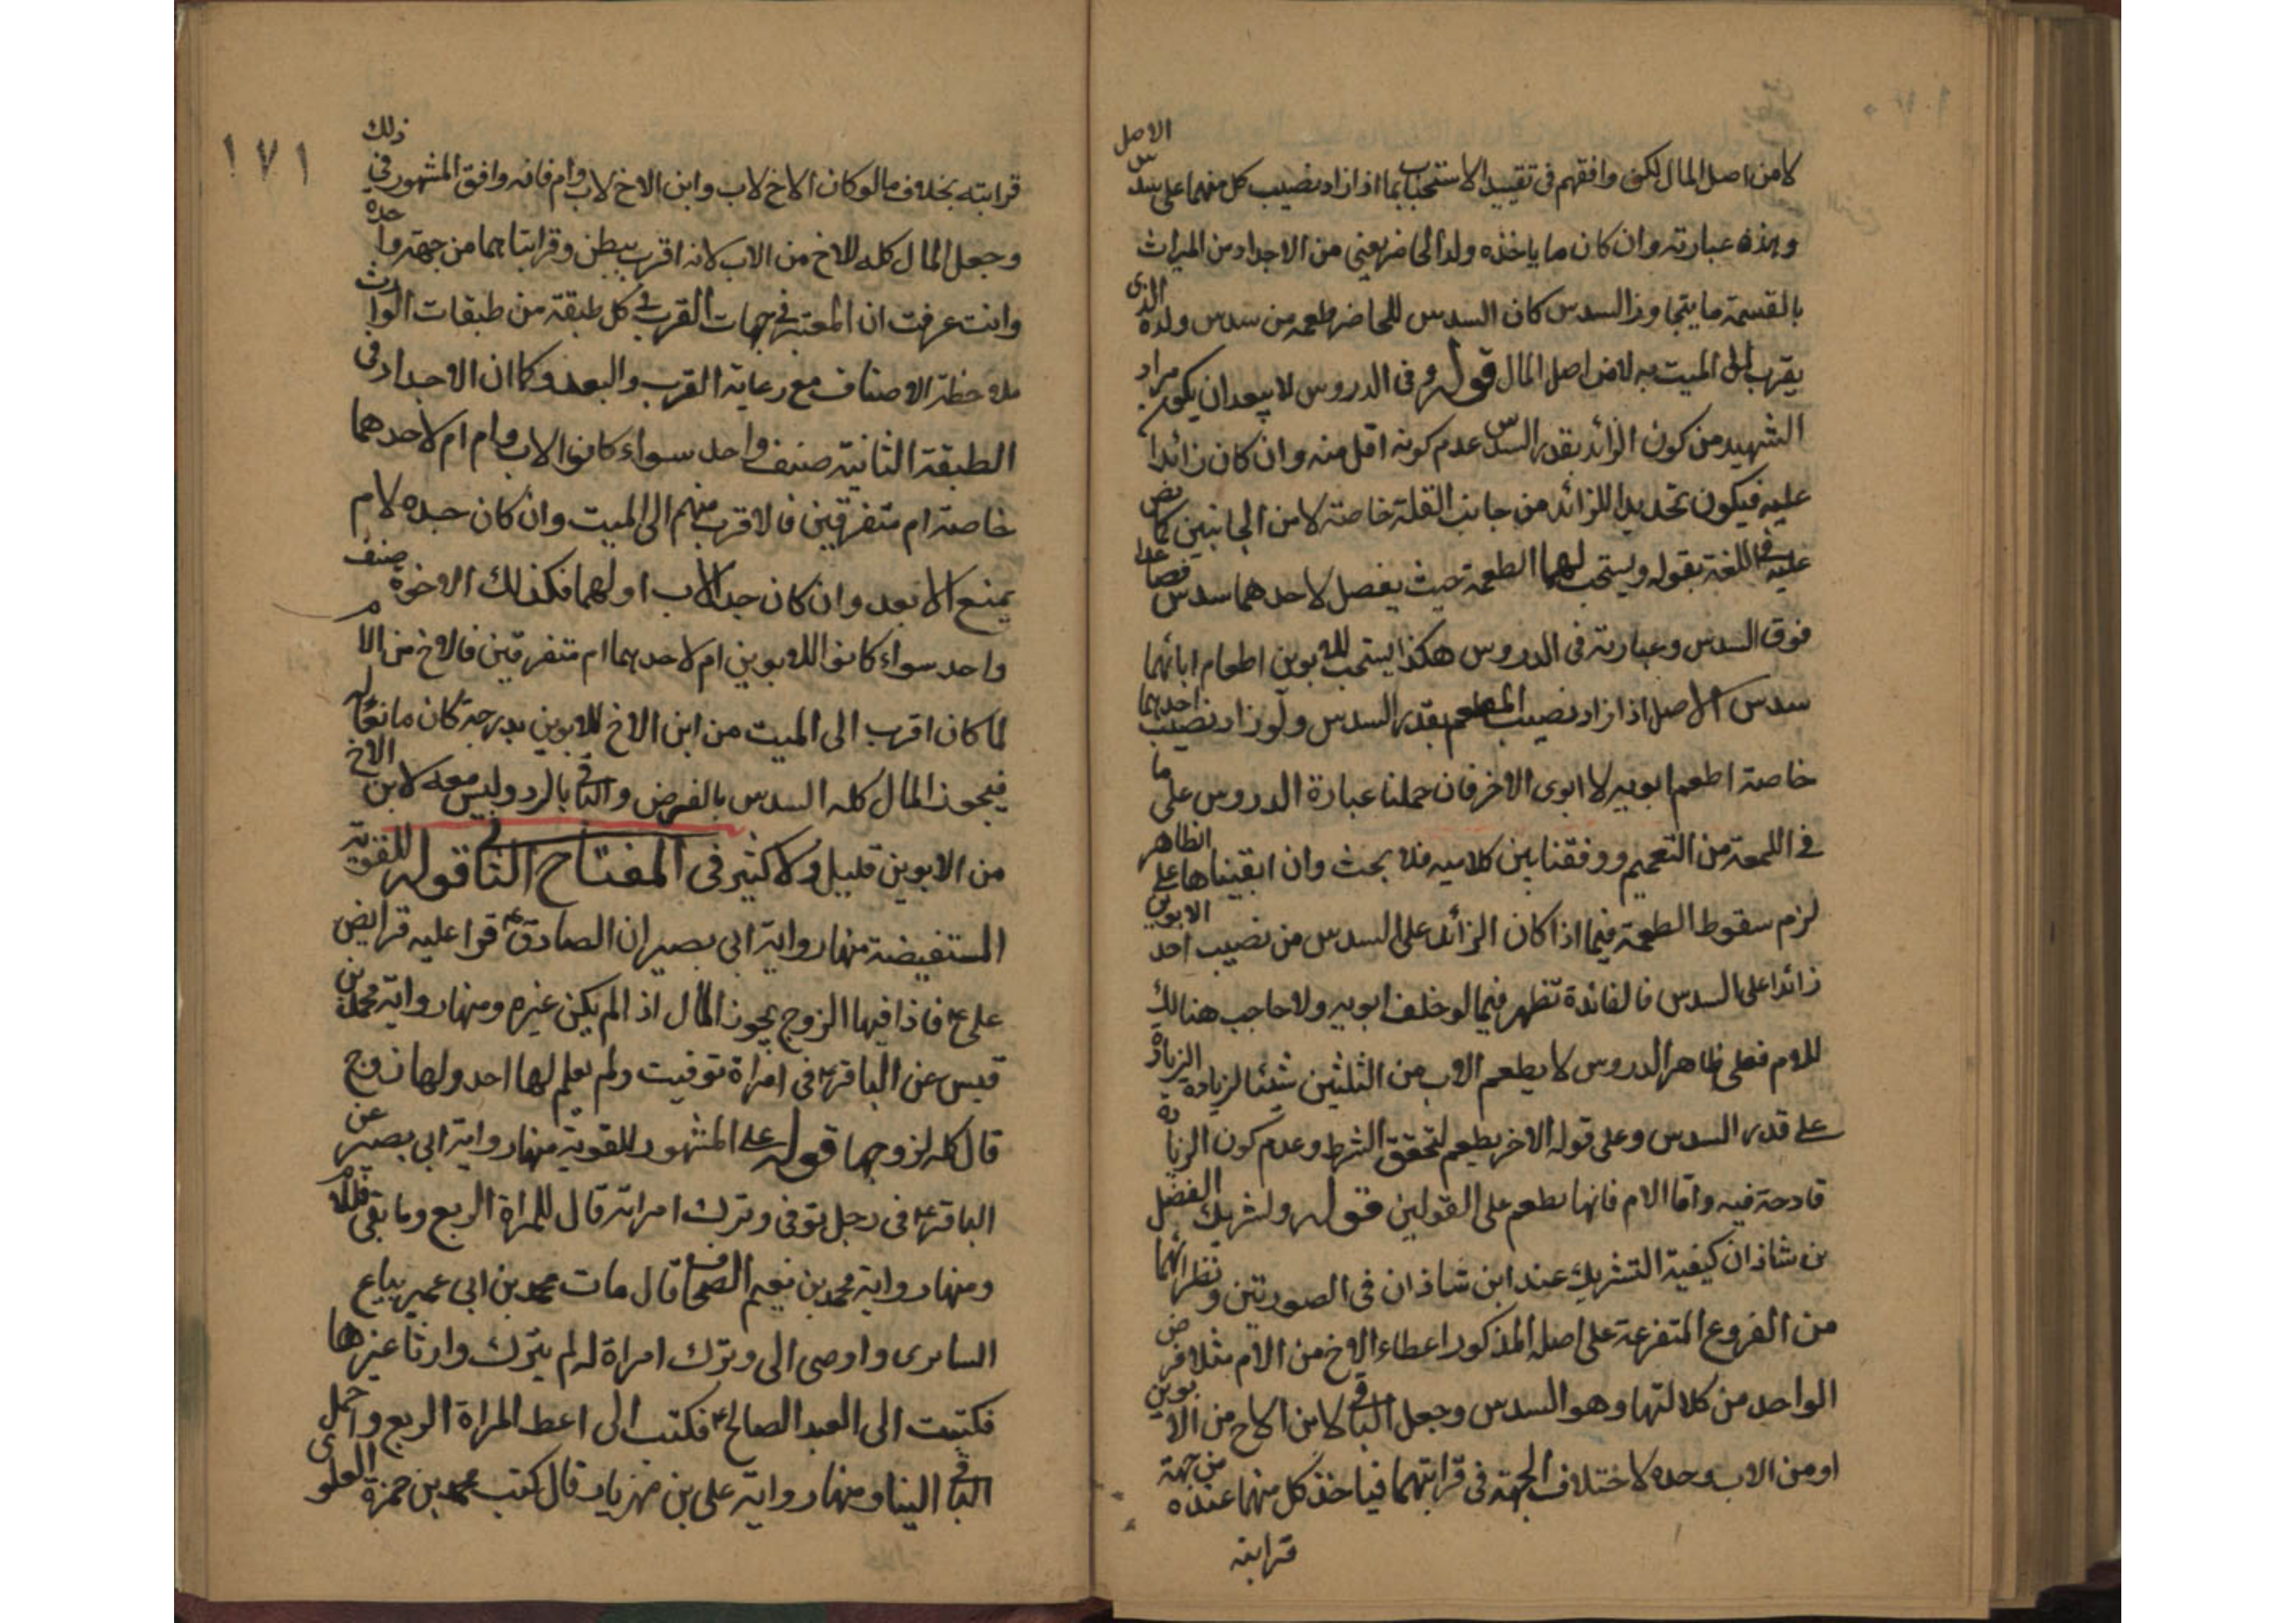 لا من اصل المال لكن وافقهم فى تقييد الاستحباب بما اذا زاد نصيب كل منهما على سدس الاصل
وهذه عبارته وان كان ما ياخذه ولد الحاضر يعنى من الاجداد من الميراث
بالقسمة ما يتجاوز السدس كان السدس للحاضر طعمه من سدس ولده الذى
يقرب الى الميت به لا من اصل المال قوله وفى الدروس لا يبعد ان يكون مراد
الشهيد من كون الزائد بقدر السدس عدم كونه اقل منه وان كان زائدا
عليه فيكون تحديدا للزائد من جانب القلة خاصة لا من الجانبين كما نص
عليه فى اللمعة بقوله ويستحب لهما الطعمة حيث يفضل لاحدهما سدس فصاعدا
فوق السدس وعبارته فى الدروس هكذا يستحب للابوين اطعام ابائهما
سدس الاصل اذا زاد نصيب المطعم بقدر السدس ولو زاد نصيب احدهما
خاصة اطعم ابويه لا ابوى الاخر فان حملنا عبارة الدروس على ما
فى اللمعة من التعميم ووفقنا بين كلاميه فلا بحث وان ابقيناها على الظاهر
لزم سقوط الطعمة فيما اذا كان الزائد على السدس من نصيب احد الابوين
زائدا على السدس فالفائدة تظهر فيما لو خلف ابويه ولا حاجب هنالك
للام فعلى ظاهر الدروس لا يطعم الاب من الثلثين شيئا لزيادة الزيادة
على قدر السدس وعلى قوله الاخر يطعم لتحقق الشرط وعدم كون الزيادة
قادحة فيه واما الام فانها تطعم على القولين قوله ولتشريك الفضل
بن شاذان كيفية التشريك عند ابن شاذان فى الصورتين ونظرائهما
من الفروع المتفرعة على اصله المذكور اعطاء الاخ من الام مثلا فرض
الواحد من كلالتها وهو السدس وجعل الباقى لابن الاخ من الابوين
او من الاب وحده لاختلاف الجهة فى قرابتهما فياخذ كل منهما عنده من جهة
قرابته
١٧١
قرابته بخلاف ما لو كان الاخ لاب وابن الاخ لاب وام فانه وافق المشهور فى ذلك
وجعل المال كله للاخ من الاب لانه اقرب ببطن وقرابتاهما من جهة واحدة
وانت عرفت ان المعتبر فى جهات القرب فى كل طبقة من طبقات الوارث
ملاحظة الاصناف مع رعاية القرب والبعد وكما ان الاجداد فى
الطبقة الثانية صنف واحد سواء كانوا لاب وام ام لاحدهما
خاصة ام متفرقين فالاقرب منهم الى الميت وان كان جده لام
يمنع الابعد وان كان جد الاب او لهما فكذلك الاخوة صنف
واحد سواء كانوا للابوين ام لاحدهما ام متفرقين فالاخ من الام
لما كان اقرب الى الميت من ابن الاخ للابوين بدرجة كان مانعا له
فيحوز المال كله السدس بالفرض والباقى بالرد وليس معه لابن الاخ
من الابوين قليل ولا كثير فى المفتاح الثانى قوله للقوية
المستفيضة منها رواية ابى بصير ان الصادق ع قرا عليه فرايض
على ع فاذا فيها الزوج يحوز المال اذا لم يكن غيره ومنها رواية محمد بن
قيس عن الباقر ع فى امراة توفيت ولم يعلم لها احد ولها زوج
قال كله لزوجها قوله على المشهور للقوية منها رواية ابى بصير عن
الباقر ع فى رجل توفى وترك امراته قال للمراة الربع وما بقى فللامام
ومنها رواية محمد بن نعيم الصحاف قال مات محمد بن ابى عمير بياع
السابرى واوصى الى وترك امراة له لم يترك وارثا غيرها
فكتبت الى العبد الصالح ع فكتب الى اعط المراة الربع واحمل
الباقى الينا ومنها رواية على بن مهزيار قال كتب محمد بن حمزة العلوى